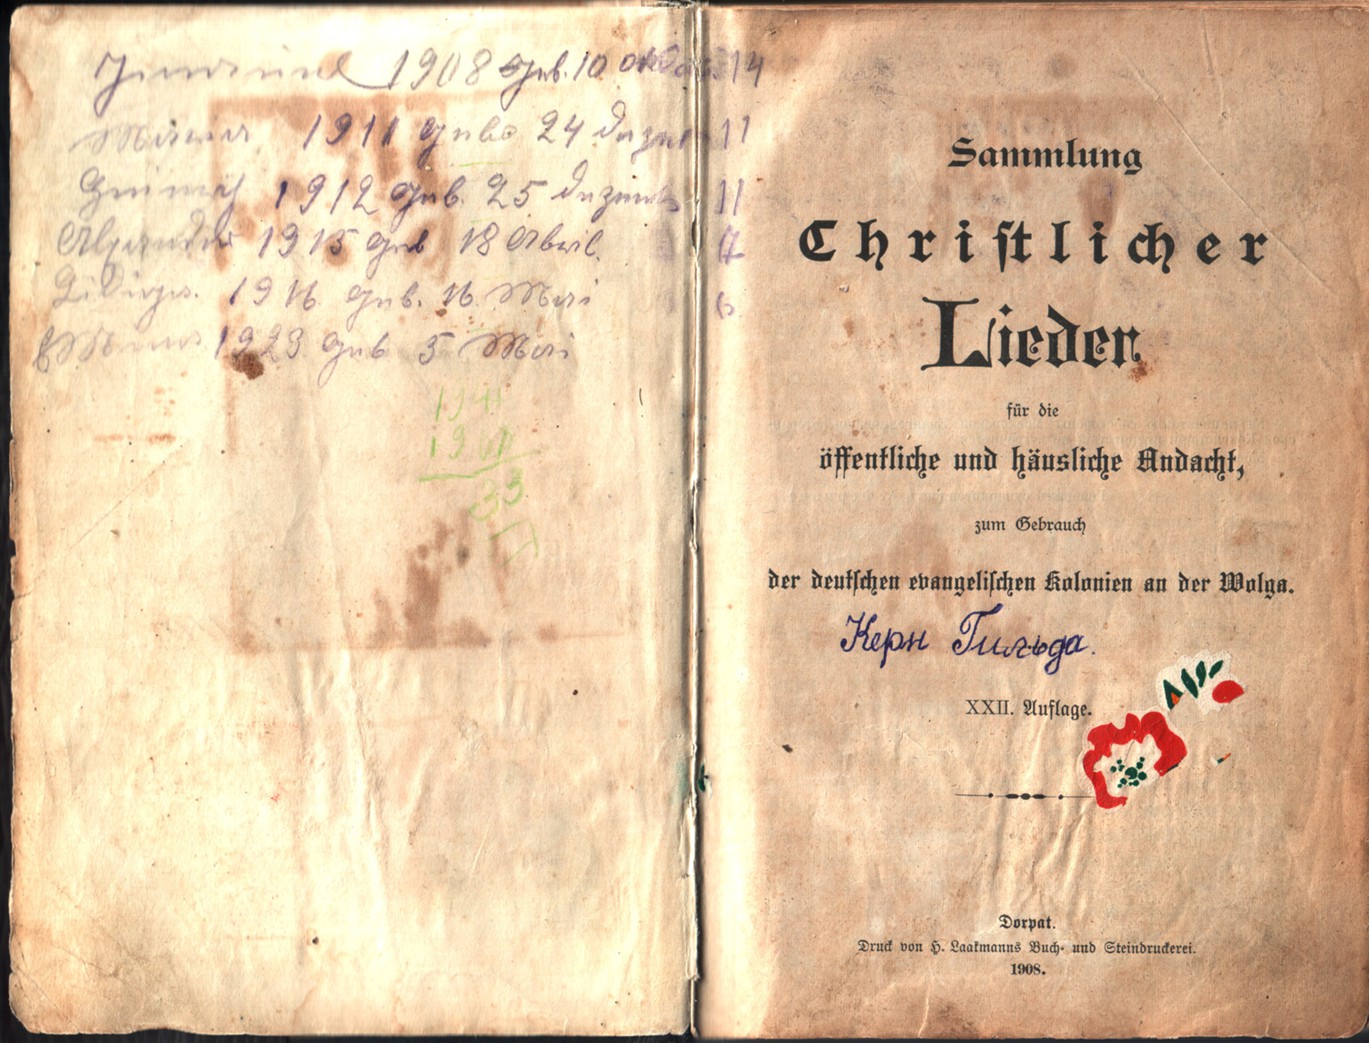 1908 geb. 10 14
1911 geb 24 11
1912 geb. 25 11
1915 geb 18 Abril.
1916. geb. 16. Mai
1923 geb 5 Mai
19
19
33
Sammlung
Christlicher
Lieder
für die
öffentliche und häusliche Andacht,
zum Gebrauch
der deutschen evangelischen Kolonien an der Wolga.
Керн Гильда.
XXII. Auflage.
Dorpat.
Druck von H. Laakmanns Buch- und Steindruckerei.
1908.